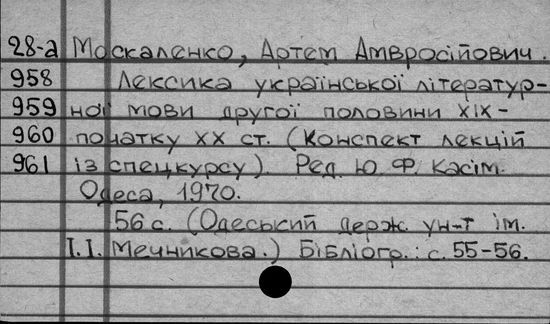 28-а Москаленко, Артем Амвросійович.
958 Лексика української літератур-
959 ної мови другої половини XIX-
960 початку XX ст. (Конспект лекцій
961 із спецкурсу). Ред. Ю. Ф. Касім.
Одеса, 1970.
56 с. (Одеський держ. ун-т ім.
І.І. Мечникова.) Бібліогр.: с. 55-56.